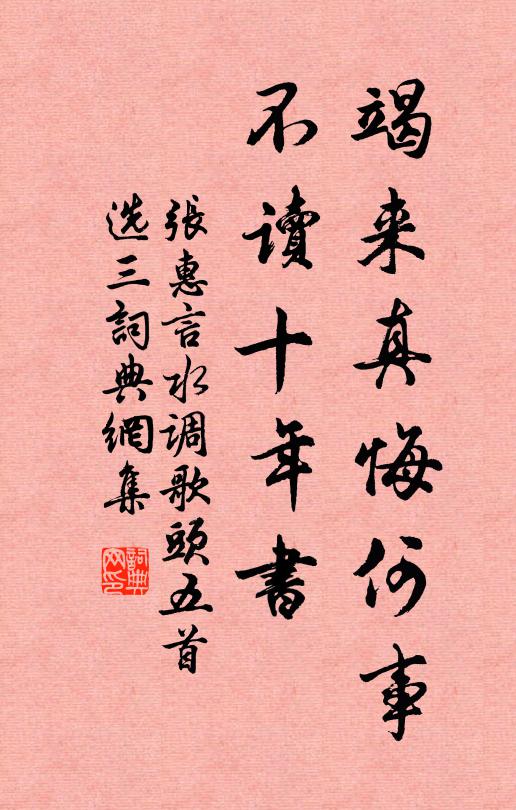 竭来真悔何事
不讀十年書
張惠言水调歌頭五首
选三詞典網集
詞典网印